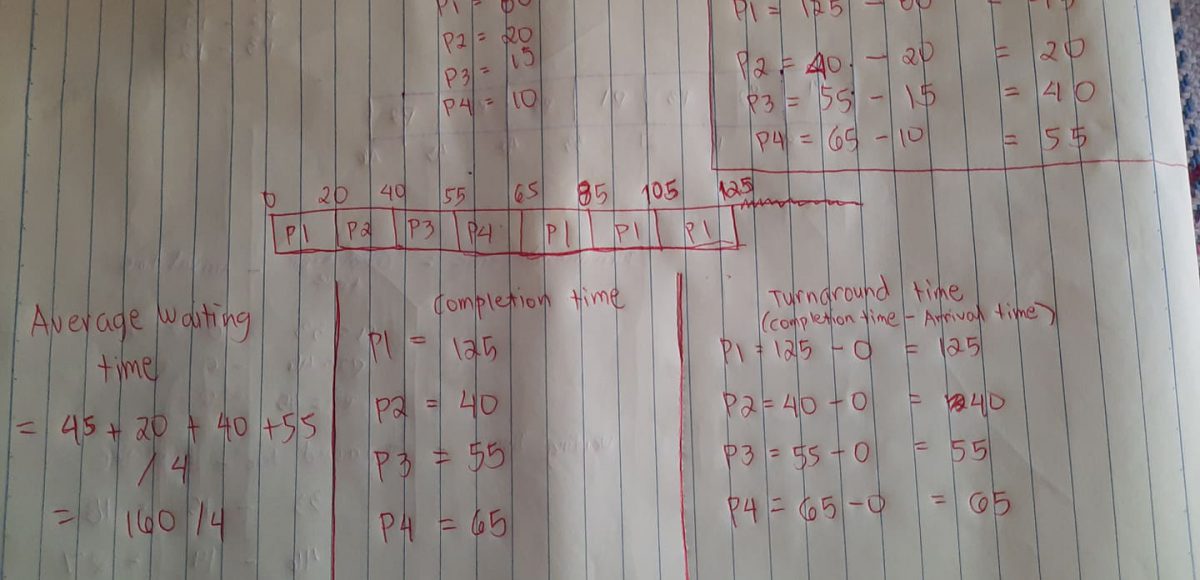 P2 = 20
P3 = 15
P4 = 10
P1 = 125 -
P2 = 40 - 20 = 20
P3 = 55 - 15 = 40
P4 = 65 - 10 = 55
0 20 40 55 65 85 105 125
P1 P2 P3 P4 P1 P1 P1
Average waiting
time
= 45 + 20 + 40 + 55
/ 4
= 160 / 4
Completion time
P1 = 125
P2 = 40
P3 = 55
P4 = 65
Turnaround time
(completion time - Arrival time)
P1 = 125 - 0 = 125
P2 = 40 - 0 = 40
P3 = 55 - 0 = 55
P4 = 65 - 0 = 65